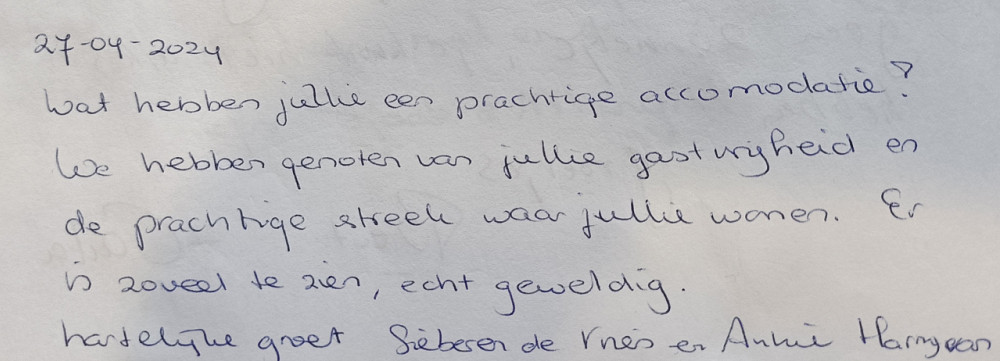 27-04-2024
Wat hebben jullie een prachtige accomodatie?
We hebben genoten van jullie gastvrijheid en
de prachtige streek waar jullie wonen. Er
is zoveel te zien, echt geweldig.
hartelijke groet de Vries en